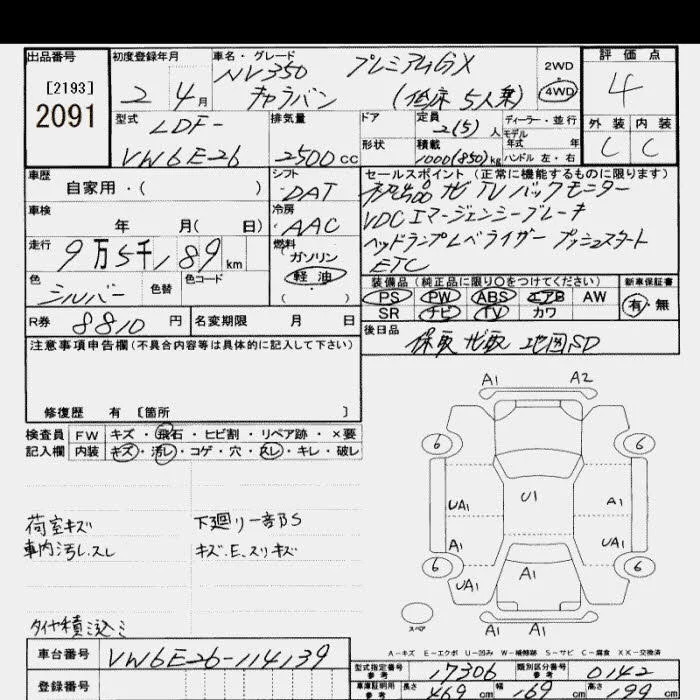 出品番号
[2193]
2091
初度登録年月
2 4月
車名・グレード
NV350 プレミアムGX
キャラバン (低床 5人乗)
2WD
4WD
評価点
4
外装 内装
C C
型式
LDF-
VW6E26
排気量
2500cc
ドア
形状
定員
2(5)人
積載
1000(850)kg
ディーラー・並行
モデル
年式 年
ハンドル 左・右
車歴
自家用・( )
シフト
DAT
車検
年 月( 日)
冷房
AAC
走行
9万5千189km
燃料
ガソリン
軽油
( )
色
シルバー
色替
色コード
R券 8810円
名変期限 月 日
セールスポイント(正常に機能するものに限ります)
ナビ TV バックモニター
VDC エマージェンシーブレーキ
ヘッドランプレベライザー プッシュスタート
ETC
装備品(純正品に限り○をつけてください)
PS PW ABS エアB AW
SR ナビ TV カワ
新車保証書
有・無
後日品
保取 ナビ取 地図SD
注意事項申告欄(不具合内容等は具体的に記入して下さい)
修復歴 有 [箇所 ]
検査員
記入欄
FW キズ・飛石・ヒビ割・リペア跡・×要
内装 キズ・汚レ・コゲ・穴・スレ・キレ・破レ
荷室キズ
車内汚レ、スレ
下廻り一部S
キズ、E、スリキズ
タイヤ積込ミ
A1 A2
6 6
UA1 U1 A1
A1 UA1
6 6
UA1 A1
スペア
A1 A1
A-キズ E-エクボ U-凹み W-補修跡 S-サビ C-腐食 XX-交換済
車台番号 VW6E26-114139
登録番号
型式指定番号
参考
17306
類別区分番号
参考
0142
車庫証明用
参考
長さ 469cm
幅 169cm
高さ 199cm